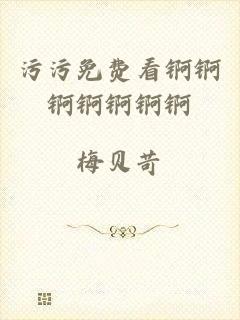 污污免费看锕锕
锕锕锕锕锕
梅贝苛